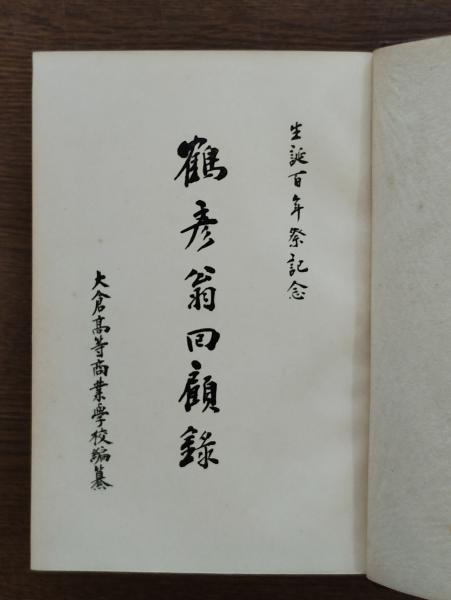 生誕百年祭記念
鶴彦翁回顧録
大倉高等商業學校編纂